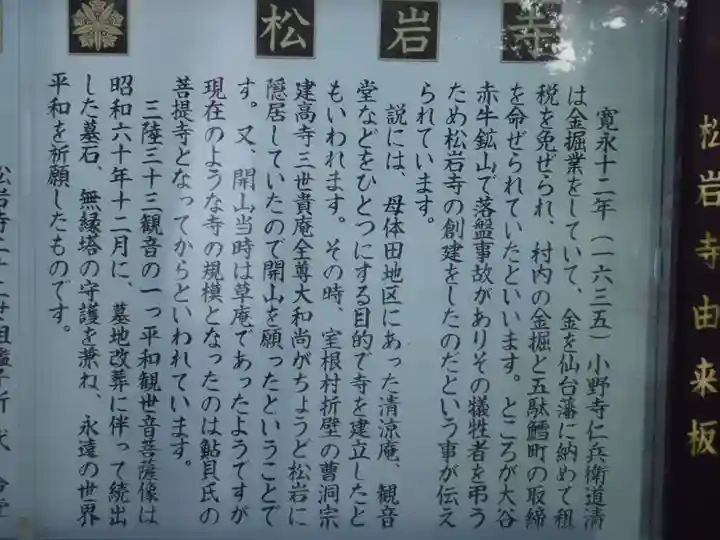 松岩寺由来板
松岩寺
寛永十二年（一六三五）小野寺仁兵衛道清
は金掘業をしていて、金を仙台藩に納めて租
税を免ぜられ、村内の金掘と五駄鱈町の取締
を命ぜられていたといいます。ところが大谷
赤牛鉱山で落盤事故がありその犠牲者を弔う
ため松岩寺の創建をしたのだという事が伝え
られています。
説には、母体田地区にあった清涼庵、観音
堂などをひとつにする目的で寺を建立したと
もいわれます。その時、室根村折壁の曹洞宗
建高寺三世貴庵全尊大和尚がちょうど松岩に
隠居していたので開山を願ったということで
す。又、開山当時は草庵であったようですが
現在のような寺の規模となったのは鮎貝氏の
菩提寺となってからといわれています。
三陸三十三観音の一つ平和観世音菩薩像は
昭和六十年十二月に、墓地改葬に伴って続出
した墓石、無縁塔の守護を兼ね、永遠の世界
平和を祈願したものです。